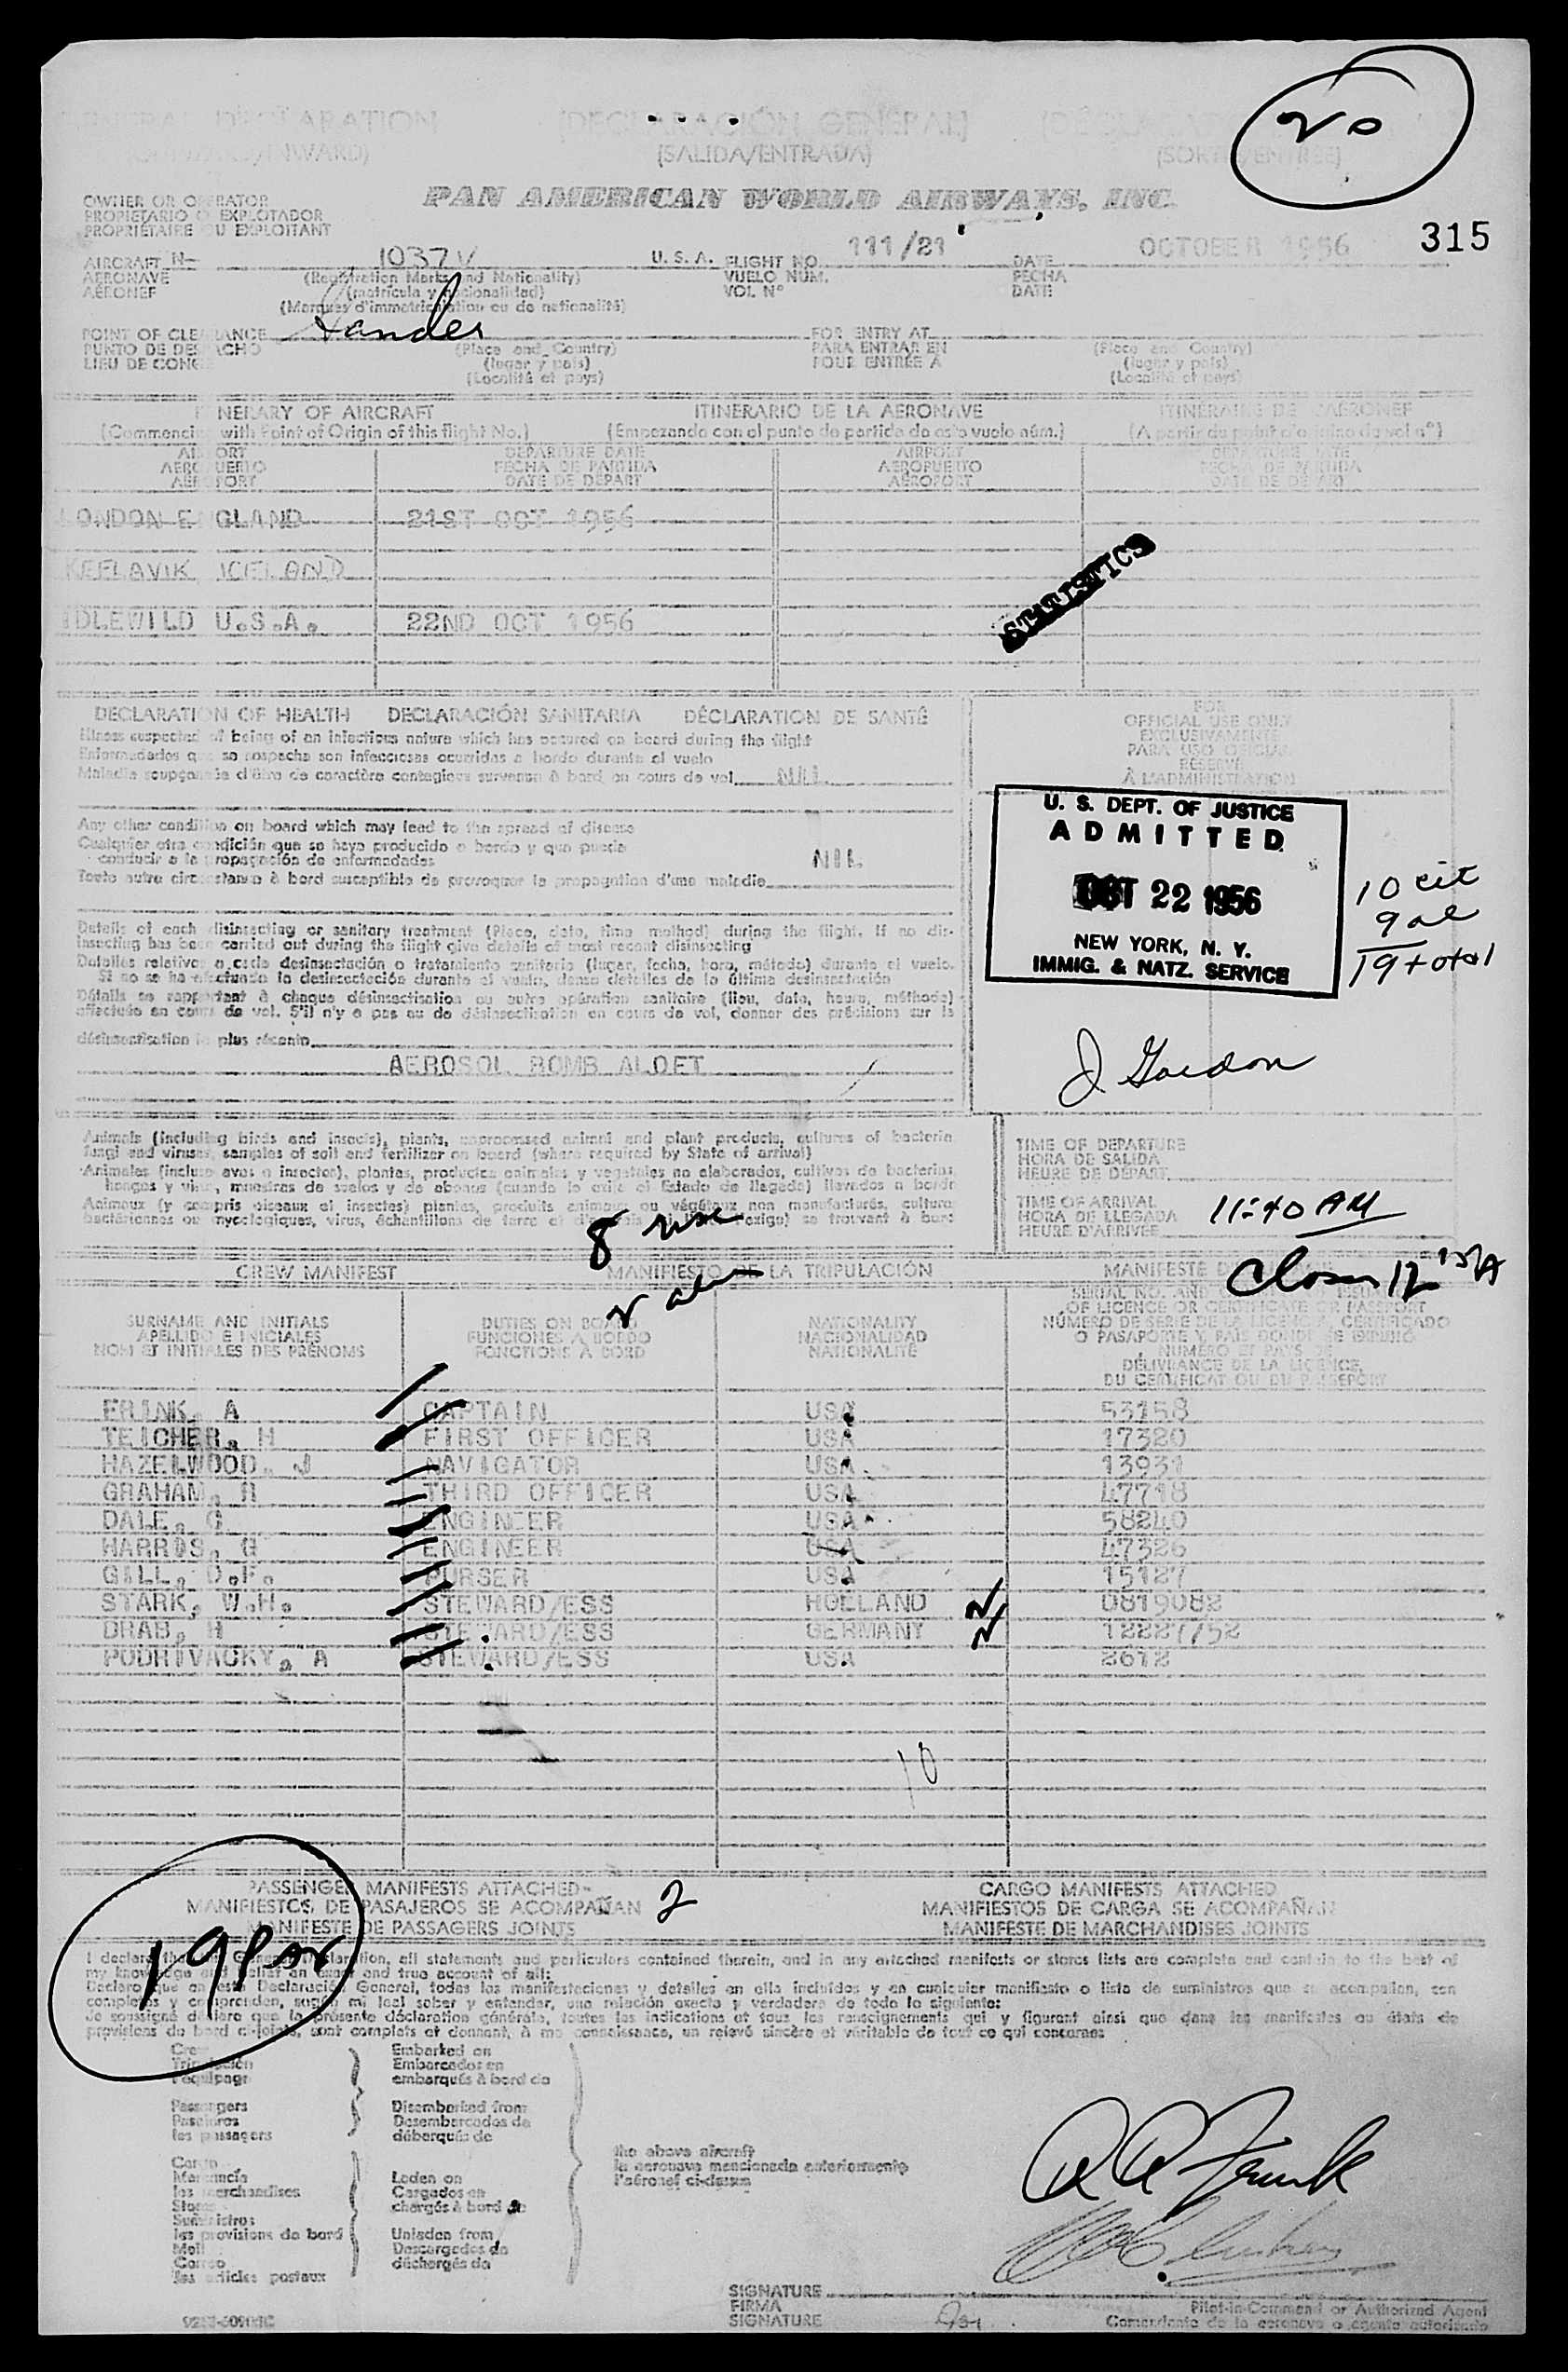 20
GENERAL DECLARATION [DECLARACIÓN GENERAL]
(OUTWARD/INWARD) (SALIDA/ENTRADA) (SORTIE/ENTRÉE)
OWNER OR OPERATOR
PROPIETARIO O EXPLOTADOR
PROPRIÉTAIRE OU EXPLOITANT
PAN AMERICAN WORLD AIRWAYS, INC.
315
AIRCRAFT N- 1037V U. S. A. FLIGHT NO. 111/21 DATE OCTOBER 1956
AERONAVE (Registration Marks and Nationality) VUELO NÚM. FECHA
AÉRONEF (matrícula y nacionalidad) VOL Nº DATE
(Marques d'immatriculation ou de nationalité)
POINT OF CLEARANCE FOR ENTRY AT
PUNTO DE DESPACHO (Place and Country) PARA ENTRAR EN (Place and Country)
LIEU DE CONGÉ (lugar y país) POUR ENTRÉE À (lugar y país)
(Localité et pays) (Localité et pays)
ITINERARY OF AIRCRAFT ITINERARIO DE LA AERONAVE ITINÉRAIRE DE L'AÉRONEF
(Commencing with Point of Origin of this flight No.) (Empezando con el punto de partida de este vuelo núm.) (A partir du point d'origine du vol nº)
AIRPORT DEPARTURE DATE AIRPORT DEPARTURE DATE
AEROPUERTO FECHA DE PARTIDA AEROPUERTO FECHA DE PARTIDA
AÉROPORT DATE DE DÉPART AÉROPORT DATE DE DÉPART
LONDON ENGLAND 21ST OCT 1956
KEFLAVIK ICELAND
STATISTICS
IDLEWILD U.S.A. 22ND OCT 1956
DECLARATION OF HEALTH DECLARACIÓN SANITARIA DÉCLARATION DE SANTÉ
Illness suspected of being of an infectious nature which has occurred on board during the flight
Enfermedades que se sospecha son infecciosas ocurridas a bordo durante el vuelo
Maladie soupçonnée d'être de caractère contagieux survenue à bord au cours de vol NIL
Any other condition on board which may lead to the spread of disease
Cualquier otra condición que se haya producido a bordo y que pueda
conducir a la propagación de enfermedades
Toute autre circonstance à bord susceptible de provoquer la propagation d'une maladie NIL
Details of each disinsecting or sanitary treatment (Place, date, time method) during the flight. If no dis-
insecting has been carried out during the flight give details of most recent disinsecting
Detalles relativos a cada desinsectación o tratamiento sanitario (lugar, fecha, hora, método) durante el vuelo.
Si no se ha efectuado la desinsectación durante el vuelo, dense detalles de la última desinsectación
Détails se rapportant à chaque désinsectisation ou autre opération sanitaire (lieu, date, heure, méthode)
effectuée en cours de vol. S'il n'y a pas eu de désinsectisation en cours de vol, donner des précisions sur la
désinsectisation la plus récente
AEROSOL BOMB ALOFT
FOR
OFFICIAL USE ONLY
EXCLUSIVAMENTE
PARA USO OFICIAL
RÉSERVÉ
À L'ADMINISTRATION
U. S. DEPT. OF JUSTICE
ADMITTED
OCT 22 1956
NEW YORK, N. Y.
IMMIG. & NATZ. SERVICE
10 cit
9 al
19 total
J Gordon
Animals (including birds and insects), plants, unprocessed animal and plant products, cultures of bacteria
fungi and viruses, samples of soil and fertilizer on board (where required by State of arrival)
Animales (incluso aves o insectos), plantas, productos animales y vegetales no elaborados, cultivos de bacterias
hongos y virus, muestras de suelos y de abonos (cuando lo exija el Estado de llegada) llevados a bordo
Animaux (y compris oiseaux et insectes) plantes, produits animaux ou végétaux non manufacturés, culture
TIME OF DEPARTURE
HORA DE SALIDA
HEURE DE DÉPART
TIME OF ARRIVAL
HORA DE LLEGADA 11:40 AM
HEURE D'ARRIVÉE
CREW MANIFEST MANIFIESTO DE LA TRIPULACIÓN
SURNAME AND INITIALS DUTIES ON BOARD NATIONALITY
APELLIDO E INICIALES FUNCIONES A BORDO NACIONALIDAD
NOM ET INITIALES DES PRÉNOMS FONCTIONS À BORD NATIONALITÉ
OF LICENCE OR CERTIFICATE OR PASSPORT
NÚMERO DE SERIE DE LA LICENCIA, CERTIFICADO
O PASAPORTE Y PAÍS DONDE SE EMITIÓ
NUMÉRO ET PAYS DE
DÉLIVRANCE DE LA LICENCE,
DU CERTIFICAT OU DU PASSEPORT
FRINK, A CAPTAIN USA 53158
TEICHER, H FIRST OFFICER USA 17320
HAZELWOOD, J NAVIGATOR USA 13931
GRAHAM, R THIRD OFFICER USA 47718
DALE, G ENGINEER USA 58240
HARRIS, G ENGINEER USA 47326
GILL, D.F. PURSER USA 15127
STARK, W.H. STEWARD/ESS HOLLAND 0819082
DRAB, H STEWARD/ESS GERMANY 12227/52
PODHIVACKY, A STEWARD/ESS USA 2612
10
PASSENGER MANIFESTS ATTACHED- 2 CARGO MANIFESTS ATTACHED
MANIFIESTOS DE PASAJEROS SE ACOMPAÑAN MANIFIESTOS DE CARGA SE ACOMPAÑAN
MANIFESTE DE PASSAGERS JOINTS MANIFESTE DE MARCHANDISES JOINTS
I declare that this General Declaration, all statements and particulars contained therein, and in any attached manifests or stores lists are complete and contain to the best of
my knowledge and belief an exact and true account of all:
Declaro que en esta Declaración General, todas las manifestaciones y detalles en ella incluidos y en cualquier manifiesto o lista de suministros que se acompañan, son
completos y comprenden, según mi leal saber y entender, una relación exacta y verdadera de todo lo siguiente:
Je soussigné déclare que la présente déclaration générale, toutes les indications et tous les renseignements qui y figurent ainsi que dans les manifestes ou états de
provisions de bord ci-joints, sont complets et donnent, à ma connaissance, un relevé sincère et véritable de tout ce qui concerne:
Crew Embarked on
Tripulación Embarcados en
l'equipage embarqués à bord de
Passengers Disembarked from
Pasajeros Desembarcados de
les passagers débarqués de
the above aircraft
la aeronave mencionada anteriormente
l'aéronef ci-dessus
Cargo
Mercancía Laden on
les merchandises Cargados en
Stores chargés à bord de
Suministros
les provisions de bord Unladen from
Mail Descargados de
Correo déchargés de
les articles postaux
SIGNATURE
FIRMA Pilot-in-Command or Authorized Agent
SIGNATURE Comandante de la aeronave o agente autorizado